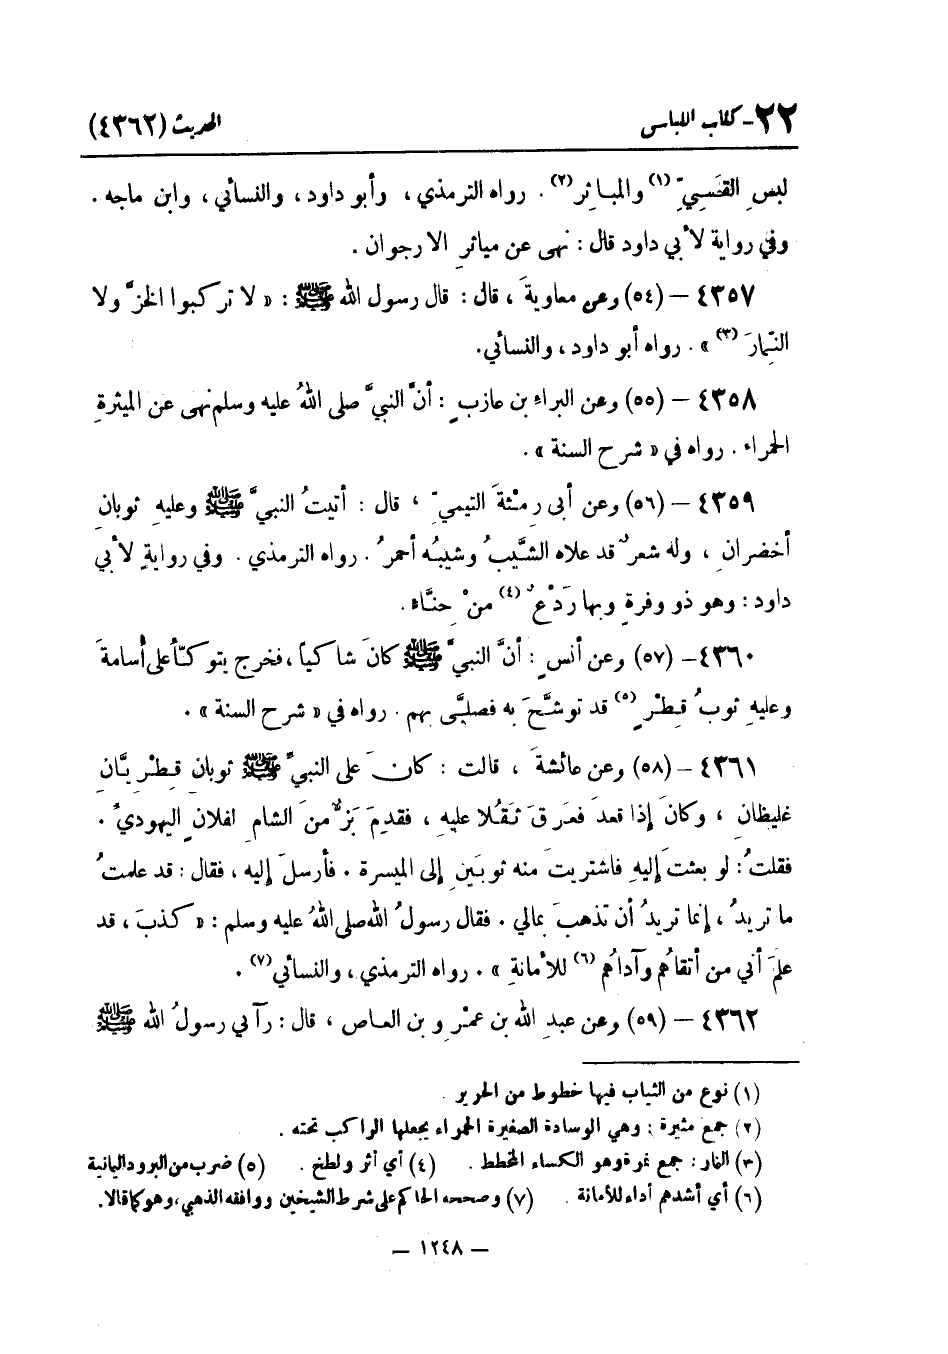 ٢٢- كتاب اللباس الحديث (٤٣٦٢)
لبسِ القَسِيِّ (١) والمياثِر (٢) . رواه الترمذي ، وأبو داود ، والنسائي ، وابن ماجه .
وفي رواية لأبي داود قال : نهى عن مياثرِ الارجوان .
٤٣٥٧ – (٥٤) وعن معاويةَ ، قال : قال رسول الله ﷺ : « لا تركبوا الخزَّ ولا
النِّمارَ (٣) » . رواه أبو داود ، والنسائي.
٤٣٥٨ – (٥٥) وعن البراءِ بن عازبٍ : أنَّ النبيَّ صلى اللهُ عليه وسلم نهى عن الميثرةِ
الحمراء . رواه في « شرح السنة » .
٤٣٥٩ – (٥٦) وعن أبى رِمْثةَ التيميِّ ، قال : أتيتُ النبيَّ ﷺ وعليهِ ثوبانِ
أخضرانِ ، وله شعرٌ قد علاه الشَّيبُ وشيبُه أحمرُ . رواه الترمذي . وفي روايةٍ لأبي
داود : وهو ذو وفرةٍ وبها رَدْعٌ (٤) منْ حِنَّاء .
٤٣٦٠– (٥٧) وعن أنسٍ : أنَّ النبيَّ ﷺ كانَ شاكياً ، فخرج يتوكَّأ على أسامةَ
وعليهِ ثوبُ قِطْرٍ (٥) قد توشَّحَ به فصلَّى بهم . رواه في « شرح السنة » .
٤٣٦١ – (٥٨) وعن عائشةَ ، قالت : كان على النبيِّ ﷺ ثوبانِ قِطْرِيَّانِ
غليظانِ ، وكانَ إذا قعدَ فعَرِقَ ثَقُلا عليهِ ، فقدِمَ بَزٌّ منَ الشامِ لفلانٍ اليهوديِّ .
فقلتُ : لو بعثتَ إليهِ فاشتريتَ منه ثوبَينِ إلى الميسرة . فأرسلَ إليه ، فقال : قد علمتُ
ما تريدُ ، إنما تريدُ أن تذهبَ بمالي . فقال رسولُ الله صلى اللهُ عليه وسلم : « كذبَ ، قد
علمَ أني من أتقاهُم وآداهُم (٦) للأمانةِ » . رواه الترمذي ، والنسائي (٧) .
٤٣٦٢ – (٥٩) وعن عبدِ الله بن عمْرِو بن العاص ، قال : رآني رسولُ الله ﷺ
(١) نوع من الثياب فيها خطوط من الحرير .
(٢) جمع مثيرة : وهي الوسادة الصغيرة الحمراء يجعلها الراكب تحته .
(٣) النمار : جمع نمرة وهو الكساء المخطط . (٤) أي أثر ولطخ . (٥) ضرب من البرود اليمانية
(٦) أي أشدهم أداء للأمانة . (٧) وصححه الحاكم على شرط الشيخين ووافقه الذهبي، وهو كما قالا.
– ١٢٤٨ –